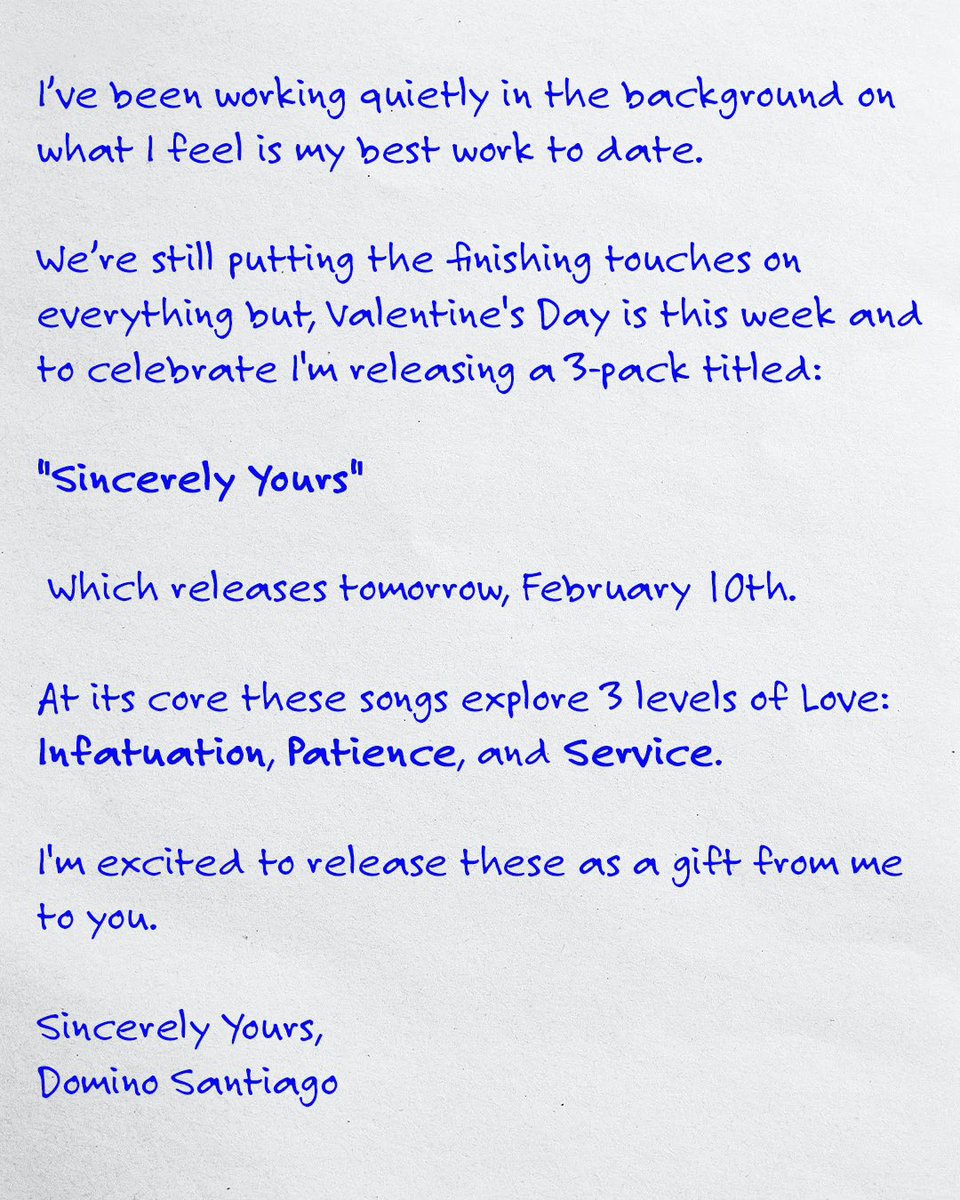 I've been working quietly in the background on
what I feel is my best work to date.
We're still putting the finishing touches on
everything but, Valentine's Day is this week and
to celebrate I'm releasing a 3-pack titled:
"Sincerely Yours"
Which releases tomorrow, February 10th.
At its core these songs explore 3 levels of Love:
Infatuation, Patience, and Service.
I'm excited to release these as a gift from me
to you.
Sincerely Yours,
Domino Santiago